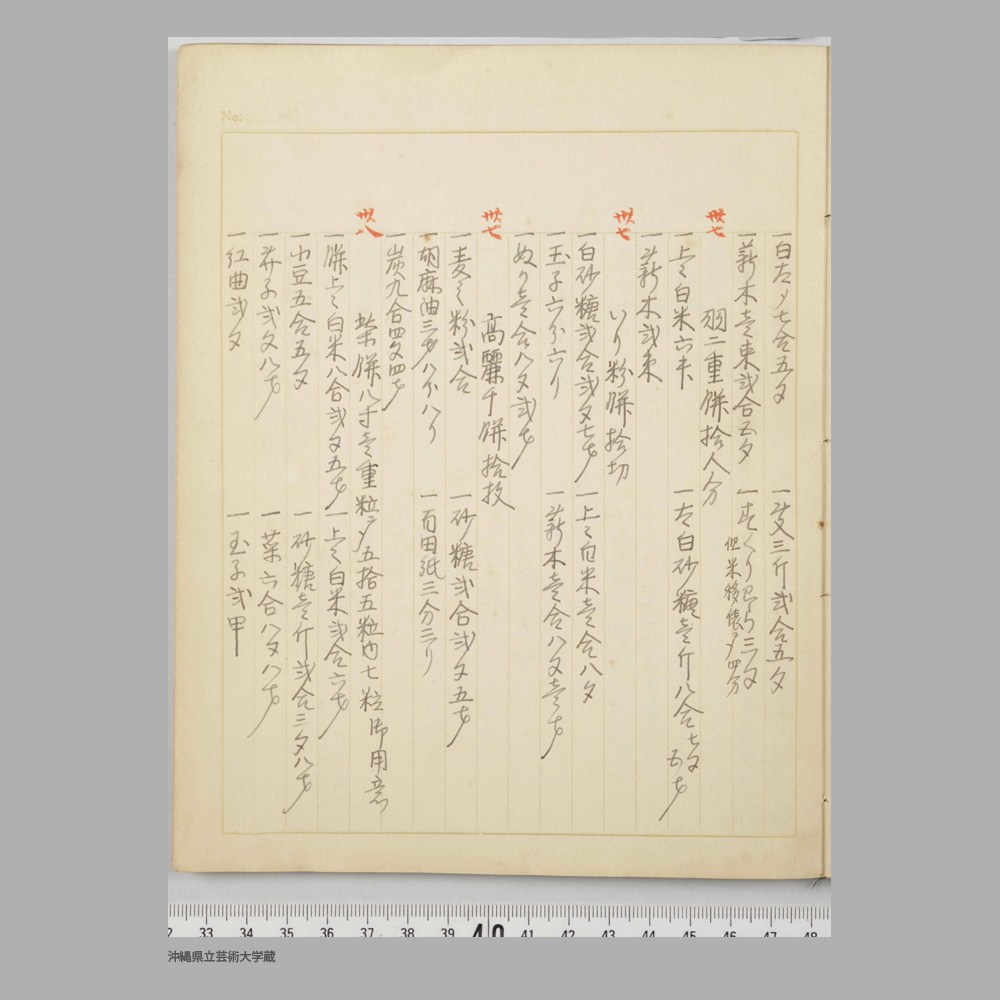 No.
一白大豆七合五夕 一炭三斤弐合五夕
一薪木壱束弐合五夕
但米移俵ヨリ四分
卅七
羽二重餅拾人分
一上々白米六升 一大白砂糖壱斤八合七夕五才
一薪木弐束
卅七
いり粉餅拾切
一白砂糖弐合弐夕七才 一上々白米壱合八夕
一玉子六分六り 一薪木壱合八夕壱才
一ぬり壱合八夕弐才
卅七
高麗千餅拾枚
一麦之粉弐合 一砂糖弐合弐夕五才
一胡麻油三才八分八り 一百田紙三分三り
一炭九合四夕四才
卅八
餅八寸壱重粒ヨリ五拾五粒内七粒御用意
一餅上々白米八合弐夕五才 一上々白米弐合六才
一小豆五合五夕 一砂糖壱斤弐合三夕八才
一芥子弐夕八才 一菜六合八夕八才
一紅曲弐夕 一玉子弐甲
33 34 35 36 37 38 39 40 41 42 43 44 45 46 47 48
沖縄県立芸術大学蔵